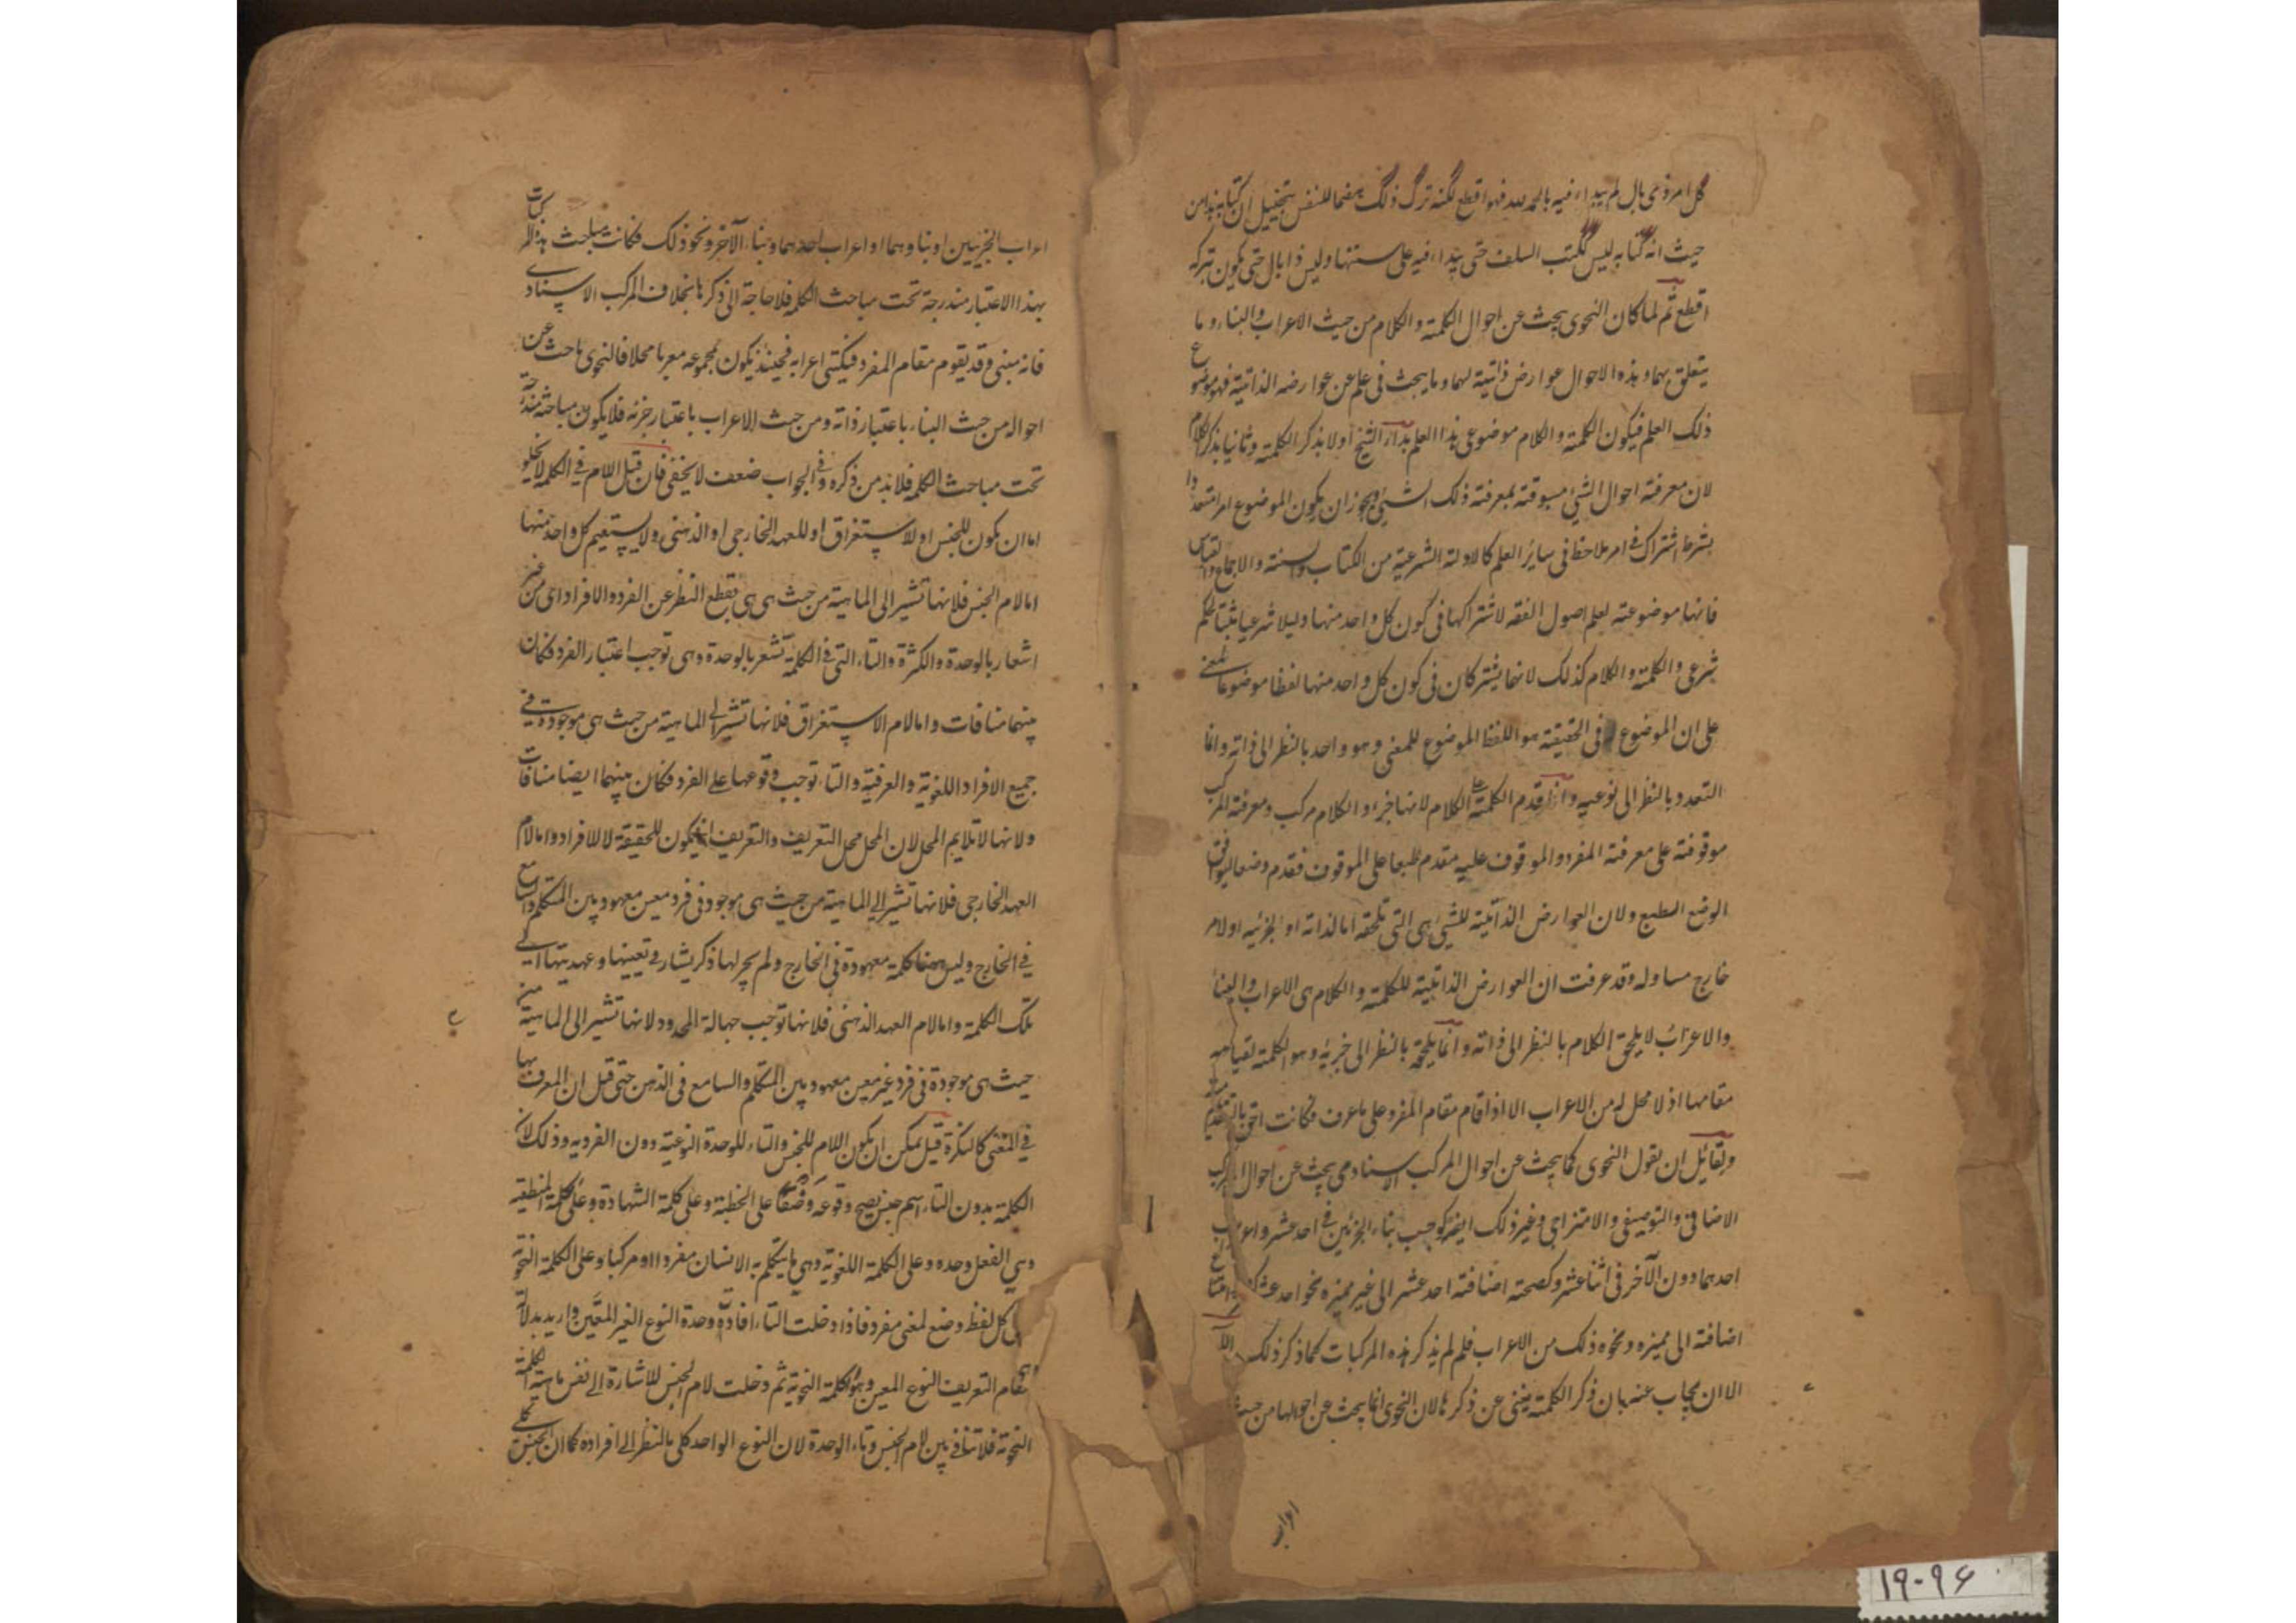 كل امر ذى بال لم يبداء فيه بالحمد لله فهو اقطع لكنه ترك ذلك هضما للنفس بتخييل ان كتابه هذا من
حيث انه كتابه ليس ككتب السلف حتى يبداء فيه على سنتها وليس ذا بال حتى يكون بتركه
اقطع ثم لما كان النحوى يبحث عن احوال الكلمة والكلام من حيث الاعراب والبناء وما
يتعلق بهما وهذه الاحوال عوارض ذاتية لهما وما يبحث فى علم عن عوارضه الذاتية فهو موضوع
ذلك العلم فيكون الكلمة والكلام موضوعى هذا العلم بداء الشيخ اولا بذكر الكلمة وثانيا بذكر الكلام
لان معرفة احوال الشيئ مسبوقة بمعرفة ذلك الشيئ ويجوز ان يكون الموضوع امرا متعددا
بشرط اشتراك فى امر ملاحظ فى سائر العلم كالادلة الشرعية من الكتاب والسنة والاجماع والقياس
فانها موضوعة لعلم اصول الفقه لاشتراكها فى كون كل واحد منها دليلا شرعيا مثبتا لحكم
شرعى والكلمة والكلام كذلك لانهما يشتركان فى كون كل واحد منهما لفظا موضوعا لمعنى
على ان الموضوع فى الحقيقة هو اللفظ الموضوع للمعنى وهو واحد بالنظر الى ذاته وانما
التعدد بالنظر الى نوعيه وانما قدم الكلمة على الكلام لانها جزء والكلام مركب ومعرفة المركب
موقوفة على معرفة المفرد والموقوف عليه مقدم طبعا على الموقوف فقدم وضعا ليوافق
الوضع الطبع ولان العوارض الذاتية للشيئ هى التى تلحقه اما لذاته او لجزئيه او لامر
خارج مساو له وقد عرفت ان العوارض الذاتية للكلمة والكلام هى الاعراب والبناء
والاعراب لا يلحق الكلام بالنظر الى ذاته وانما يلحقه بالنظر الى جزئيه وهو الكلمة لقيامه
مقامها اذ لا محل له من الاعراب الا اذا قام مقام المفرد على ما عرف فكانت احق بالتقديم
ولقائل ان يقول النحوى كما يبحث عن احوال المركب الاسنادى يبحث عن احوال المركب
الاضافى والتوصيفى والامتزاجى وغير ذلك ايضا كوجوب بناء الجزئين فى احد عشر واعراب
احدهما دون الآخر فى اثنا عشر وكصحته اضافة احد عشر الى غير مميزه نحو احد عشرك وامتناع
اضافته الى مميزه ونحوه ذلك من الاعراب فلم لم يذكر هذه المركبات كما ذكر ذلك اللهم
الا ان يجاب عنه بان ذكر الكلمة يغنى عن ذكرها لان النحوى انما يبحث عن احوالها من حيث
اعراب
اعراب الجزئيين او بناوهما او اعراب احدهما وبناء الآخر ونحو ذلك فكانت مباحث هذه المركبات
بهذا الاعتبار مندرجة تحت مباحث الكلمه فلا حاجة الى ذكرها بخلاف المركب الاسنادى
فانه مبنى وقد يقوم مقام المفرد فيكتسى اعرابه فحينئذ يكون مجموعه معربا محلا فالنحوى باحث عن
احواله من حيث البناء باعتبار ذاته ومن حيث الاعراب باعتبار جزئه فلا يكون مباحثه مندرجة
تحت مباحث الكلمه فلا بد من ذكره وفى الجواب ضعف لا يخفى فان قيل اللام فى الكلمه لا يخلو
اما ان يكون للجنس او للاستغراق او للعهد الخارجى او الذهنى ولا يستقيم كل واحد منها
اما لام الجنس فلانها تشير الى الماهية من حيث هى هى بقطع النظر عن الفرد والافراد اى من غير
اشعار بالوحدة والكثرة والتاء التى فى الكلمة تشعر بالوحدة وهى توجب اعتبار الفرد فكان
بينهما منافات واما لام الاستغراق فلانها تشير الى الماهية من حيث هى موجودة فى
جميع الافراد اللغوية والعرفية والتاء توجب وقوعها على الفرد فكان بينهما ايضا منافات
ولانها لا تلايم المحل لان المحل محل التعريف والتعريف انما يكون للحقيقة لا للافراد واما لام
العهد الخارجى فلانها تشير الى الماهية من حيث هى موجود فى فرد معين معهود بين المتكلم والسامع
فى الخارج وليس ههنا كلمة معهودة فى الخارج ولم يجر لها ذكر يشار فى تعيينها وعهديتها الى
تلك الكلمة واما لام العهد الذهنى فلانها توجب جهالة المحدود لانها تشير الى الماهية من
حيث هى موجودة فى فرد غير معين معهود بين المتكلم والسامع فى الذهن حتى قيل ان المعرف بها
فى المعنى كالنكرة قيل يمكن ان يكون اللام للجنس والتاء للوحدة النوعية دون الفرديه وذلك لان
الكلمة بدون التاء اسم جنس يصح وقوعه وضعا على الخطبة وعلى كلمة الشهادة وعلى كلمة المنطقيه
وهى الفعل وحده وعلى الكلمة اللغوية وهى ما يتكلم به الانسان مفردا او مركبا وعلى الكلمة النحوية
كل لفظ وضع لمعنى مفرد فاذا دخلت التاء افادت وحدة النوع الغير المعين واريد بدلالة
مقام التعريف النوع المعين وهو الكلمة النحوية ثم دخلت لام الجنس للاشارة الى نفس ماهية الكلمة
النحوية فلا تنافى بين لام الجنس وتاء الوحدة لان النوع الواحد كلى بالنظر الى افراده كما ان الجنس كلى
١٩-٩٤